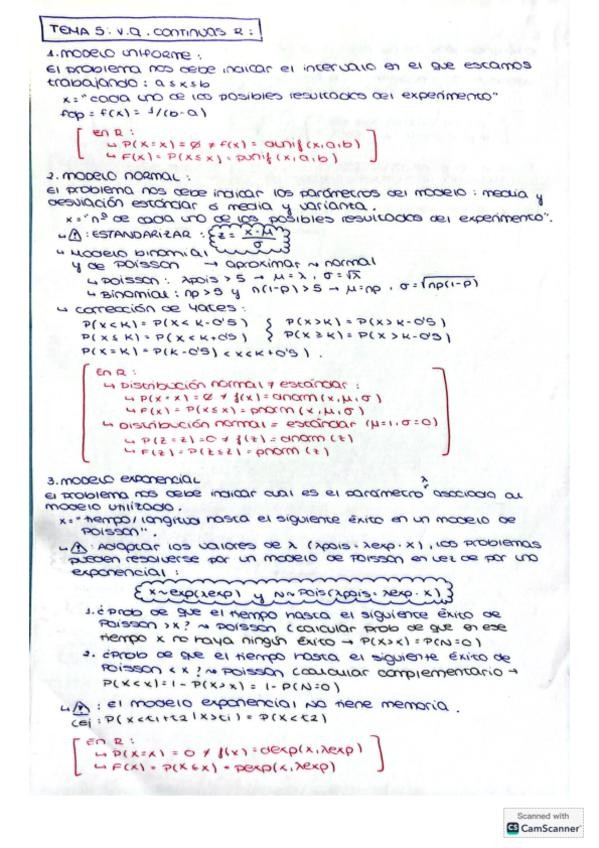 TEMA 5: V.A. CONTINUAS R:
1. MODELO UNIFORME:
El problema nos debe indicar el intervalo en el que estamos
trabajando: a ≤ x ≤ b
X = "cada uno de los posibles resultados del experimento"
fdp = f(x) = 1/(b-a)
En R:
↳ P(X=x) = 0 ≠ f(x) = dunif(x,a,b)
↳ F(x) = P(X≤x) = punif(x,a,b)
2. MODELO NORMAL:
El problema nos debe indicar los parámetros del modelo: media y
desviación estándar o media y varianza.
X = "nº de cada uno de los posibles resultados del experimento".
↳ ⚠: ESTANDARIZAR: z = (x-μ)/σ
↳ Modelo binomial
y de Poisson → aproximar ~ normal
↳ Poisson: λpois > 5 → μ = λ, σ = √λ
↳ Binomial: np > 5 y n(1-p) > 5 → μ = np, σ = √np(1-p)
↳ Corrección de Yates:
P(X<K) = P(X< K-0'5) } P(X>K) = P(X> K-0'5)
P(X≤K) = P(X< K+0'5) } P(X≥K) = P(X> K-0'5)
P(X=K) = P(K-0'5) < X < K+0'5).
En R:
↳ Distribución normal ≠ estándar:
↳ P(X=x) = 0 ≠ f(x) = dnorm(x,μ,σ)
↳ F(x) = P(X≤x) = pnorm(x,μ,σ)
↳ Distribución normal = estándar (μ=1, σ=0)
↳ P(Z=z) = 0 ≠ f(z) = dnorm(z)
↳ F(z) = P(Z≤z) = pnorm(z)
3. MODELO EXPONENCIAL
El problema nos debe indicar cual es el parámetro λ asociada al
modelo utilizado.
X = "tiempo/longitud hasta el siguiente éxito en un modelo de
Poisson".
↳ ⚠: Adaptar los valores de λ (λpois = λexp · x), los problemas
pueden resolverse por un modelo de Poisson en vez de por uno
exponencial:
X~exp(λexp) y N~Pois(λpois = λexp · x)
1. ¿Prob de que el tiempo hasta el siguiente éxito de
Poisson > x? ~ Poisson (calcular prob de que en ese
tiempo x no haya ningún éxito → P(X>x) = P(N=0)
2. ¿Prob de que el tiempo hasta el siguiente éxito de
Poisson < x? ~ Poisson (calcular complementario →
P(X<x) = 1 - P(X>x) = 1 - P(N=0)
↳ ⚠: El modelo exponencial NO tiene memoria.
(ej: P(X<t1+t2 | X>t1) = P(X<t2)
En R:
↳ P(X=x) = 0 ≠ f(x) = dexp(x,λexp)
↳ F(x) = P(X≤x) = pexp(x,λexp)
Scanned with
CS CamScanner